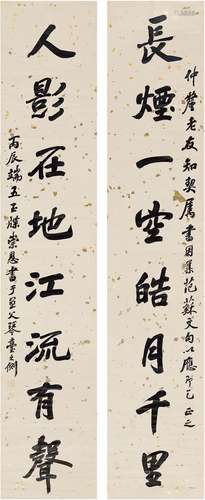 長煙一空皓月千里
仲聲老友知契屬書因集范蘇文句以應即乞正之
人影在地江流有聲
丙辰端五玉牒崇恩書于單父琴臺之側